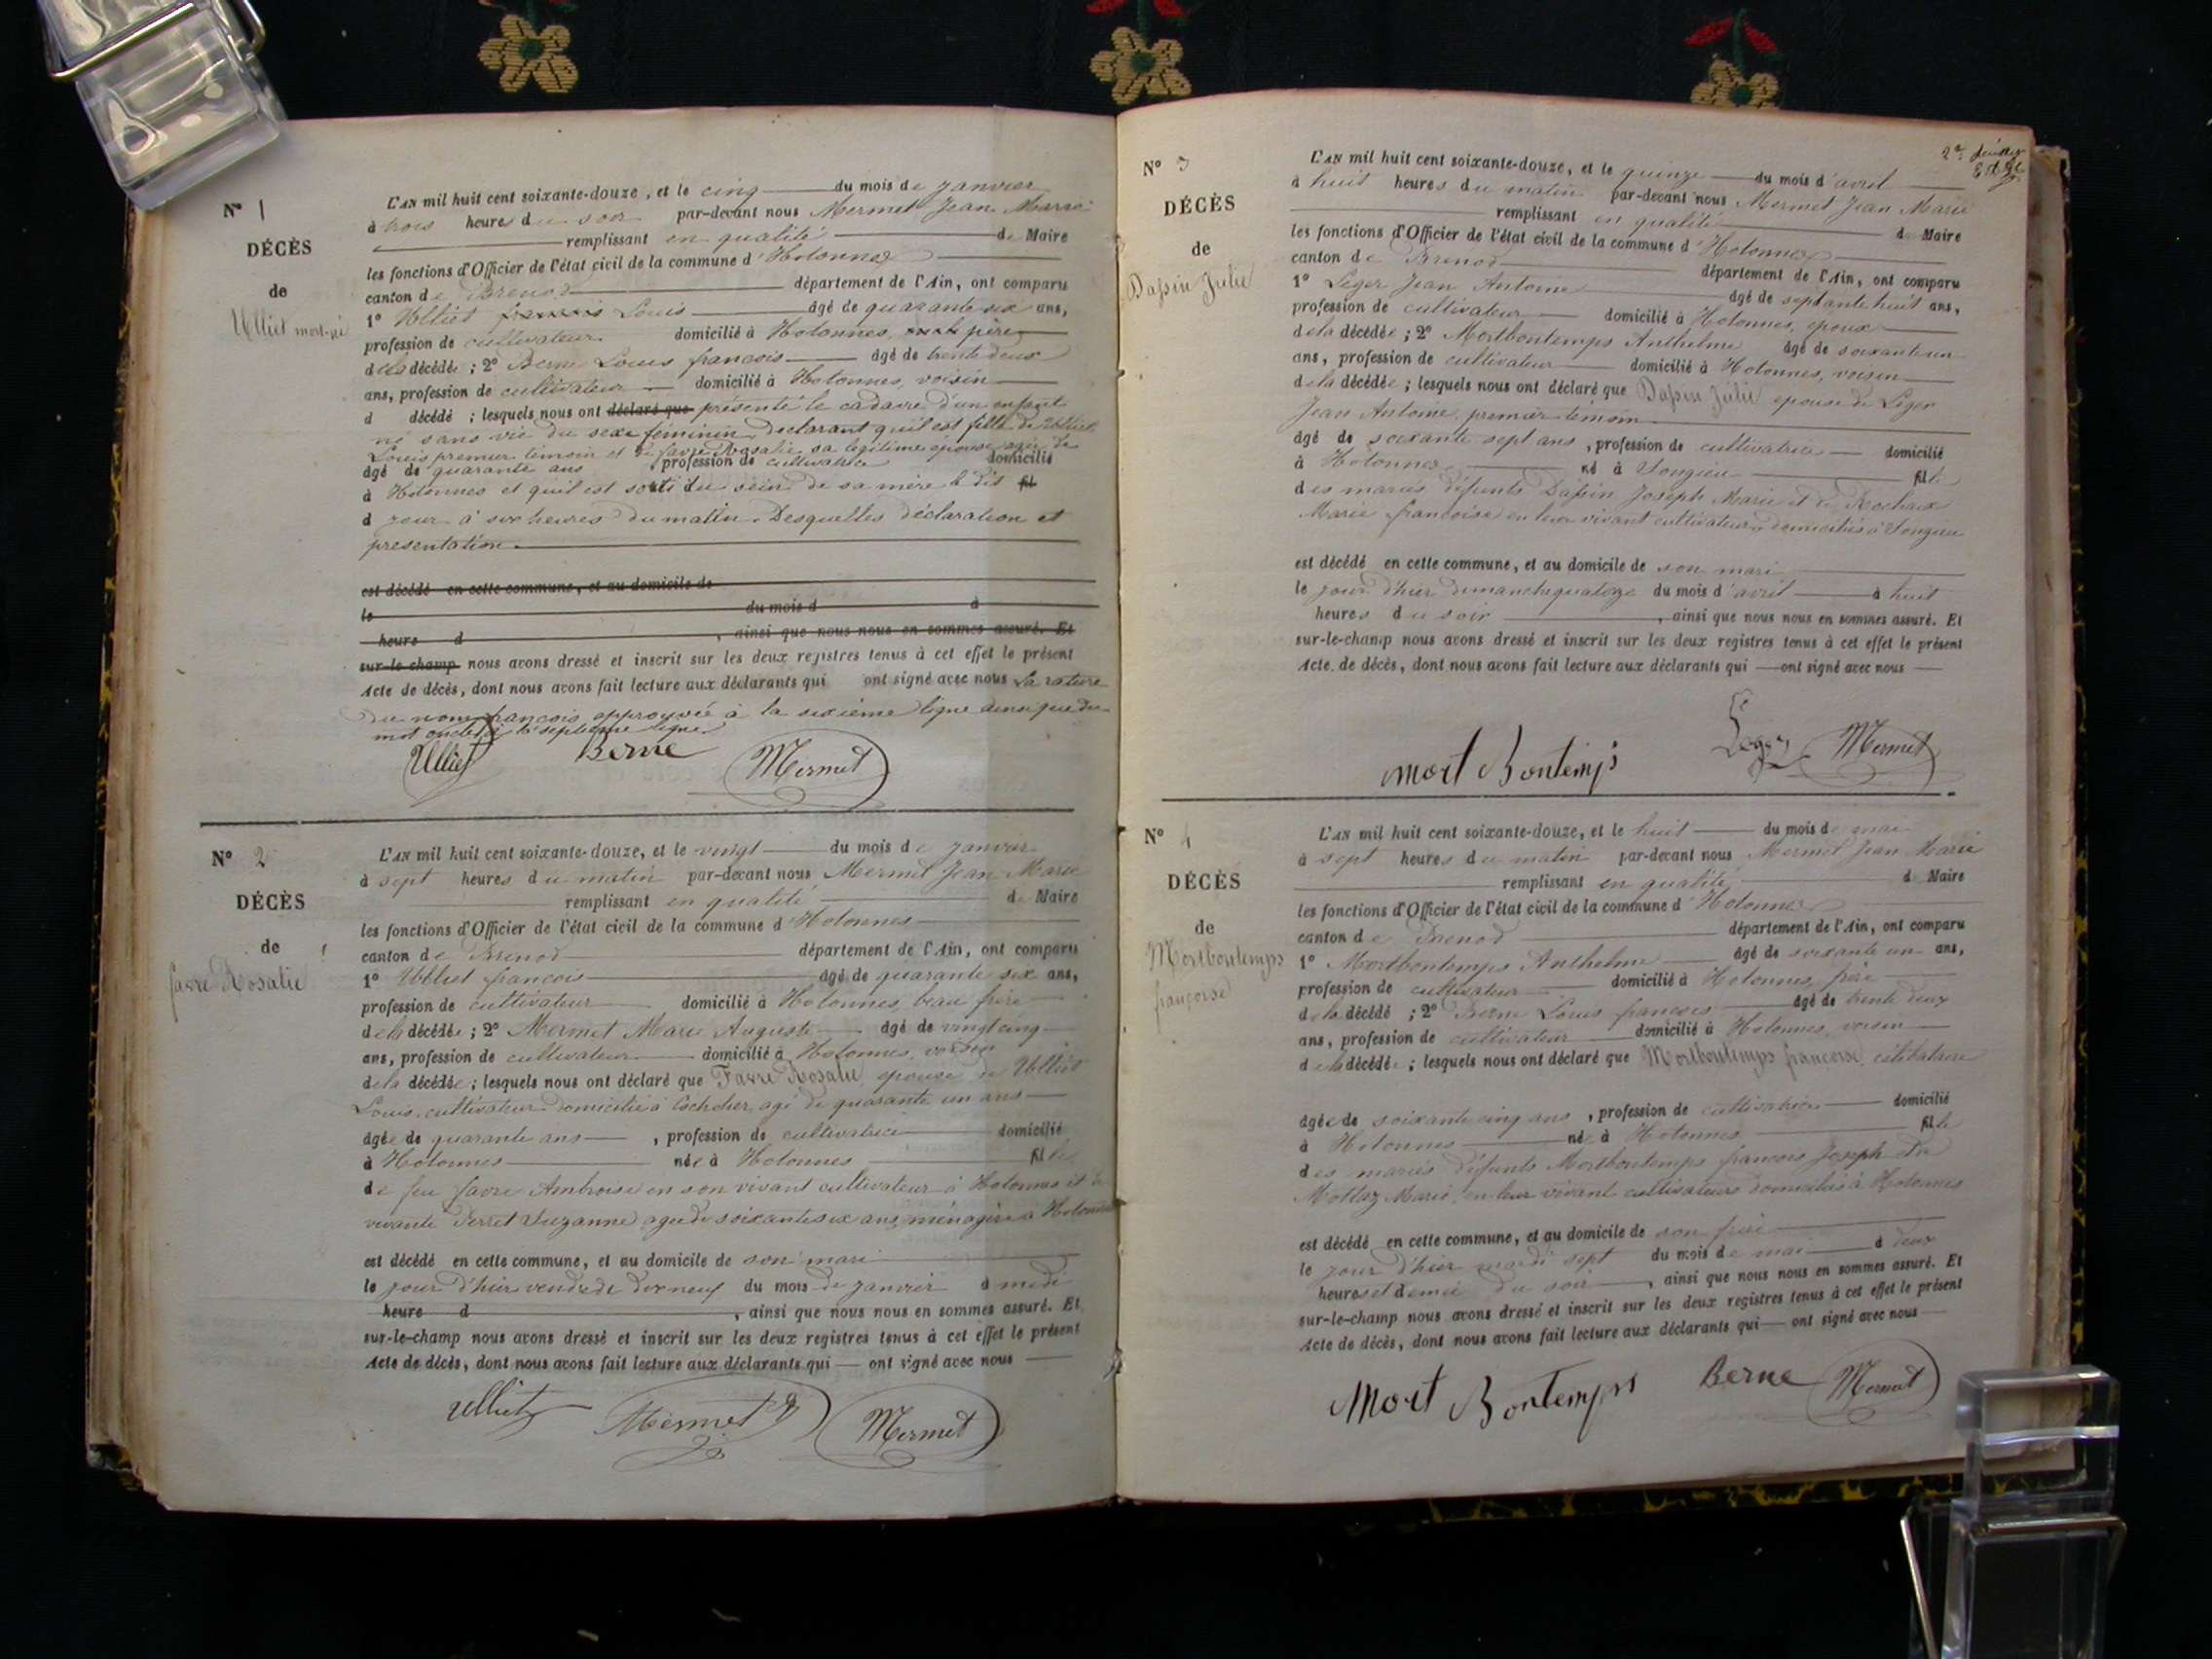 N° 1
DÉCÈS
de
Ulliet mort-né
L'AN mil huit cent soixante-douze, et le cinq du mois de janvier
à trois heures du soir par-devant nous Mermet Jean Marie
remplissant en qualité de Maire
les fonctions d'Officier de l'état civil de la commune d'Hotonnes
canton de Brenod département de l'Ain, ont comparu
1° Ulliet francois Louis âgé de quarante six ans,
profession de cultivateur domicilié à Hotonnes, père
de la décédée ; 2° Berne Louis francois âgé de trente deux
ans, profession de cultivateur domicilié à Hotonnes, voisin
d décédé ; lesquels nous ont déclaré que présenté le cadavre d'un enfant
né sans vie du sexe féminin, declarant qu'il est fille de Ulliet
Louis premier témoin et de favre Rosalie sa légitime épouse agée de
âgé de quarante ans profession de cultivatrice domicilié
à Hotonnes et qu'il est sorti du sein de sa mère le dit fil
d jour à six heures du matin. Desquelles déclaration et
présentation.
est décédé en cette commune, et au domicile de
le du mois d à
heure d , ainsi que nous nous en sommes assuré. Et
sur-le-champ nous avons dressé et inscrit sur les deux registres tenus à cet effet le présent
Acte de décès, dont nous avons fait lecture aux déclarants qui ont signé avec nous La rature
du nom francois approuvée à la sixième ligne ainsi que du
mot oncle à la septième ligne
Ulliet Berne Mermet
N° 2
DÉCÈS
de
favre Rosalie
L'AN mil huit cent soixante-douze, et le vingt du mois de janvier
à sept heures du matin par-devant nous Mermet Jean Marie
remplissant en qualité de Maire
les fonctions d'Officier de l'état civil de la commune d'Hotonnes
canton de Brenod département de l'Ain, ont comparu
1° Ulliet francois âgé de quarante six ans,
profession de cultivateur domicilié à Hotonnes, beau frère
de la décédée ; 2° Mermet Marie Auguste âgé de vingt cinq
ans, profession de cultivateur domicilié à Hotonnes, voisin
de la décédée ; lesquels nous ont déclaré que Favre Rosalie epouse de Ulliet
Louis, cultivateur domicilié à agé de quarante un ans
âgée de quarante ans , profession de cultivatrice domicilié
à Hotonnes née à Hotonnes fille
de feu favre Ambroise en son vivant cultivateur à Hotonnes et de
vivante Perret Suzanne agée de soixante six ans, ménagère à Hotonnes
est décédé en cette commune, et au domicile de son mari
le jour d'hier vendredi dix neuf du mois de janvier à midi
heure d , ainsi que nous nous en sommes assuré. Et
sur-le-champ nous avons dressé et inscrit sur les deux registres tenus à cet effet le présent
Acte de décès, dont nous avons fait lecture aux déclarants qui ont signé avec nous
Ulliet Mermet Mermet
2e feuillet
N° 3
DÉCÈS
de
Dassin Julie
L'AN mil huit cent soixante-douze, et le quinze du mois d'avril
à huit heures du matin par-devant nous Mermet Jean Marie
remplissant en qualité de Maire
les fonctions d'Officier de l'état civil de la commune d'Hotonnes
canton de Brenod département de l'Ain, ont comparu
1° Leger Jean Antoine âgé de septante huit ans,
profession de cultivateur domicilié à Hotonnes, epoux
de la décédée ; 2° Mortbontemps Anthelme âgé de soixante un
ans, profession de cultivateur domicilié à Hotonnes, voisin
de la décédée ; lesquels nous ont déclaré que Dassin Julie epouse de Leger
Jean Antoine, premier témoin
âgé de soixante sept ans , profession de cultivatrice domicilié
à Hotonnes né à Songieu fille
des mariés défunts Dassin Joseph Marie et de Rochaix
Marie francoise en leur vivant cultivateurs domiciliés à Songieu
est décédé en cette commune, et au domicile de son mari
le jour d'hier dimanche quatorze du mois d'avril à huit
heures du soir , ainsi que nous nous en sommes assuré. Et
sur-le-champ nous avons dressé et inscrit sur les deux registres tenus à cet effet le présent
Acte de décès, dont nous avons fait lecture aux déclarants qui ont signé avec nous
mort Bontemps Leger Mermet
N° 4
DÉCÈS
de
Mortbontemps
françoise
L'AN mil huit cent soixante-douze, et le huit du mois de mai
à sept heures du matin par-devant nous Mermet Jean Marie
remplissant en qualité de Maire
les fonctions d'Officier de l'état civil de la commune d'Hotonnes
canton de Brenod département de l'Ain, ont comparu
1° Mortbontemps Anthelme âgé de soixante un ans,
profession de cultivateur domicilié à Hotonnes, frère
de la décédé ; 2° Berne Louis francois âgé de trente deux
ans, profession de cultivateur domicilié à Hotonnes, voisin
de la décédée ; lesquels nous ont déclaré que Mortbontemps francoise, célibataire
âgée de soixante cinq ans , profession de cultivatrice domicilié
à Hotonnes née à Hotonnes fille
des mariés défunts Mortbontemps francois Joseph et de
Mottaz Marie, en leur vivant cultivateurs domiciliés à Hotonnes
est décédé en cette commune, et au domicile de son frère
le jour d'hier mardi sept du mois de mai à deux
heures et demie du soir , ainsi que nous nous en sommes assuré. Et
sur-le-champ nous avons dressé et inscrit sur les deux registres tenus à cet effet le présent
Acte de décès, dont nous avons fait lecture aux déclarants qui ont signé avec nous
Mort Bontemps Berne Mermet